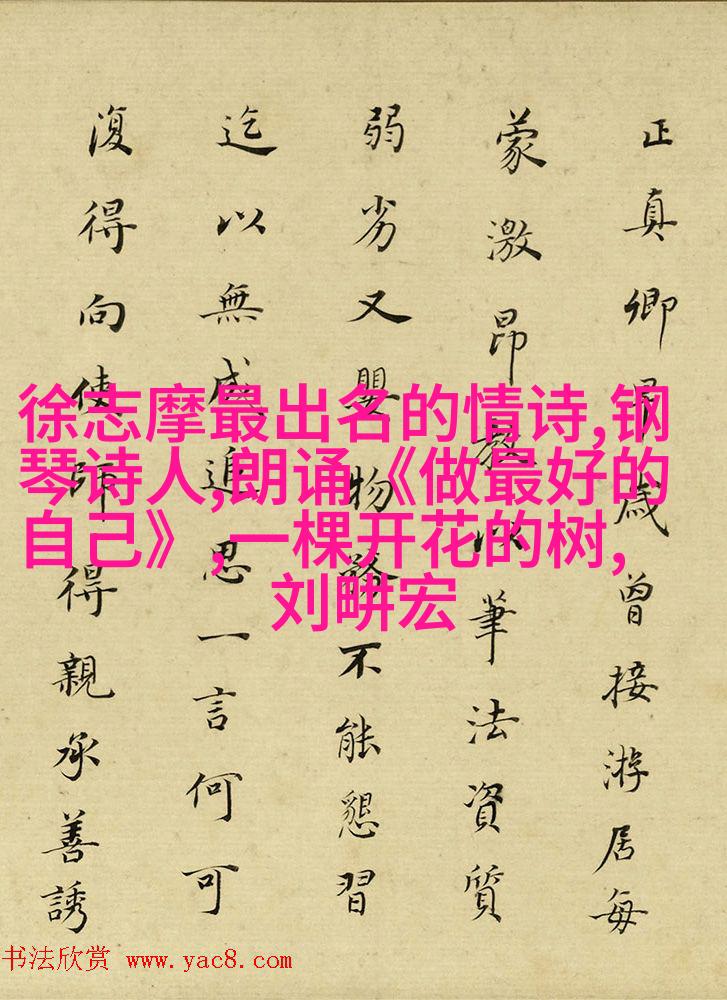 正真卿早歲曾接游居每
蒙激昂教以筆法資質
弱劣又嬰物務不能懇習
迄以無成追思一言何可
復得向使師得親承善誘
徐志摩最出名的情诗,钢
琴诗人,朗诵《做最好的
自己》,一棵开花的树,
刘畊宏
书法欣赏 www.yac8.com